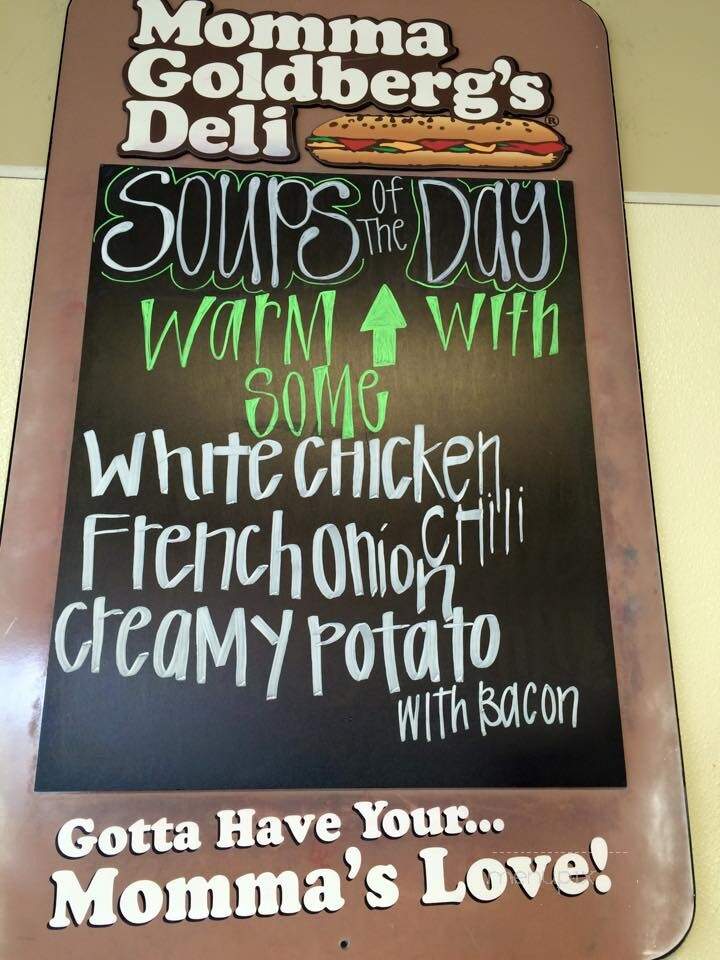 Momma
Goldberg's
Deli ®
Soups of The Day
Warm ↑ With
Some
White Chicken
Chili
French Onion
Creamy Potato
With Bacon
Gotta Have Your...
Momma's Love!